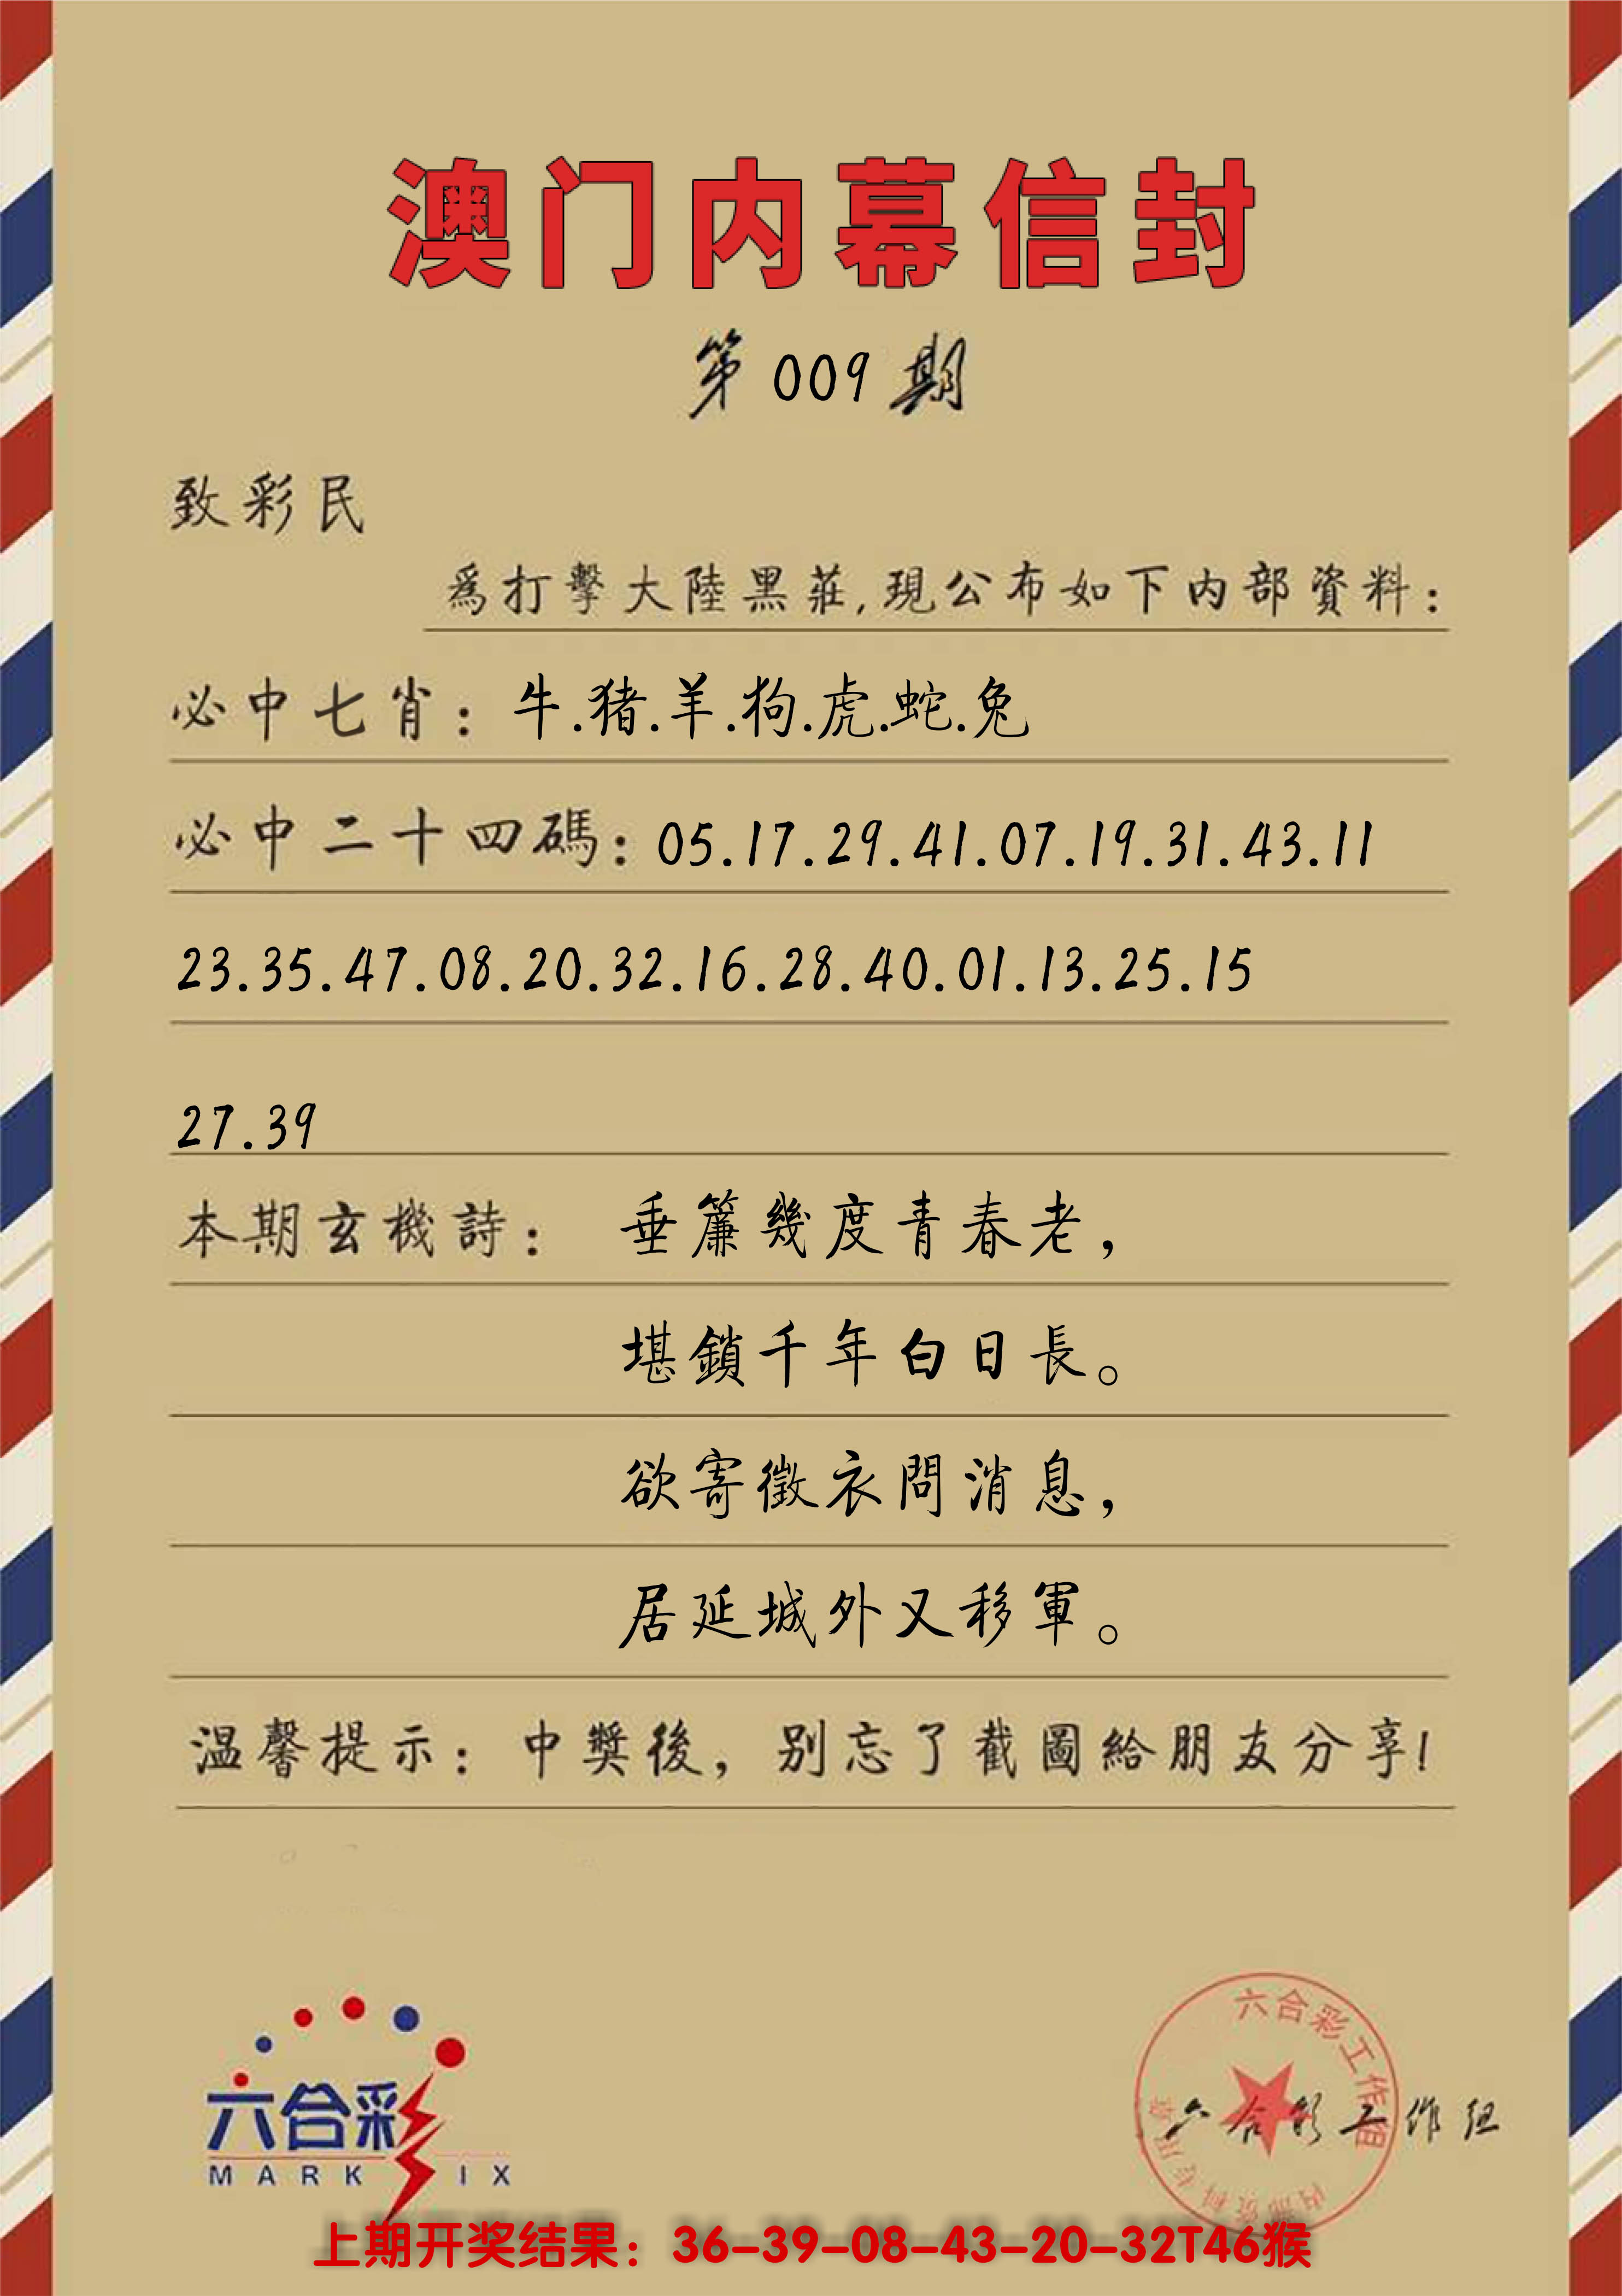 澳门内幕信封
第009期
致彩民
爲打擊大陸黑莊,現公布如下内部資料:
必中七肖: 牛.猪.羊.狗.虎.蛇.兔
必中二十四碼: 05.17.29.41.07.19.31.43.11
23.35.47.08.20.32.16.28.40.01.13.25.15
27.39
本期玄機詩: 垂簾幾度青春老,
堪鎖千年白日長。
欲寄徵衣問消息,
居延城外又移軍。
温馨提示: 中獎後, 别忘了截圖給朋友分享!
六合彩
MARK IX
六合彩工作组
内部资料专用章
六合彩工作组
上期开奖结果：36-39-08-43-20-32T46猴